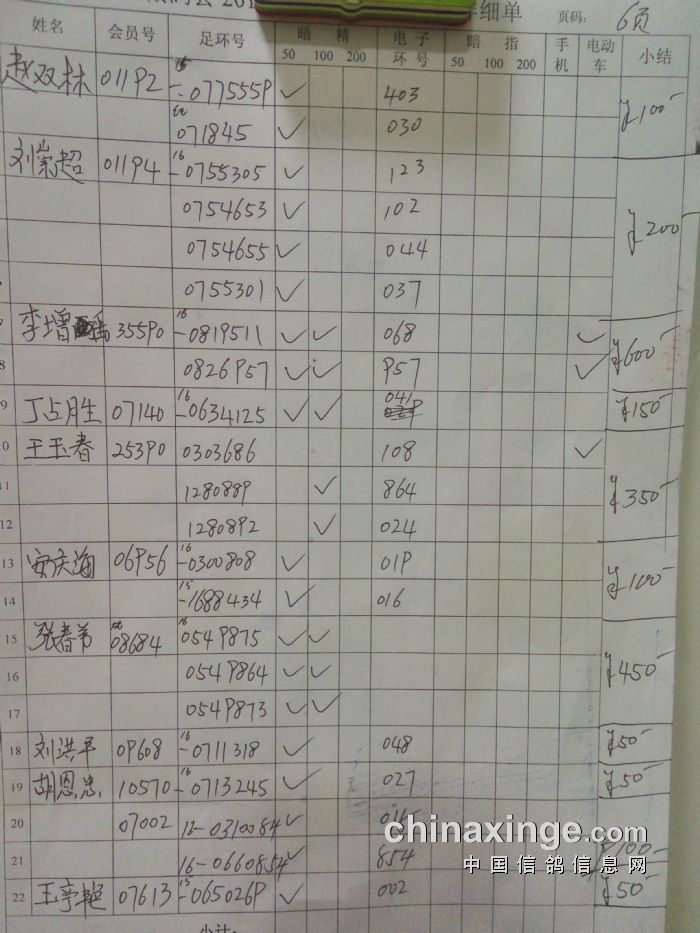 细单 页码: 6页
姓名 会员号 足环号 暗精 电子环号 暗指 手机 电动车 小结
50 100 200 50 100 200
赵双林 01192 16-0775559 ✓ 403 ¥100-
红 071845 ✓ 030
刘崇超 01194 16-0755305 ✓ 123 ¥200-
0754653 ✓ 102
0754655 ✓ 044
0755301 ✓ 037
李增 35590 16-0819511 ✓ ✓ 068 ✓ ¥600-
8 0826957 ✓ ✓ 957 ✓
9 丁占胜 07140 16-0634125 ✓ ✓ 041 ¥150-
0 王玉春 25390 0303686 108 ✓ ¥350-
11 1280889 ✓ 864
12 1280892 ✓ 024
13 安庆海 06956 16-0300808 ✓ 019 ¥100-
14 15-1688434 ✓ 016
15 张春弟 08684 16 0549875 ✓ ✓ ¥450-
16 0549864 ✓ ✓
17 0549873 ✓ ✓
18 刘洪平 09608 16-0711318 ✓ 048 ¥50-
19 胡恩忠 10570 16-0713245 ✓ 027 ¥50-
20 07002 16-0310084 ✓
chinaxinge.com
21 16-0660854 ✓ 854 ¥100-
中国信鸽信息网
22 王亭艳 07613 15-0650269 ✓ 002 ¥50-
小计: